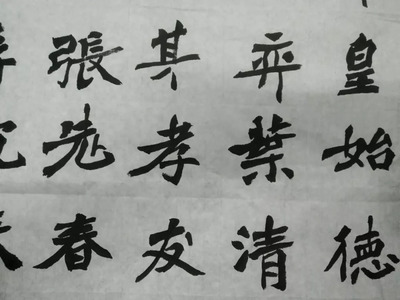 皇始德
弈葉清
其孝友
張老春